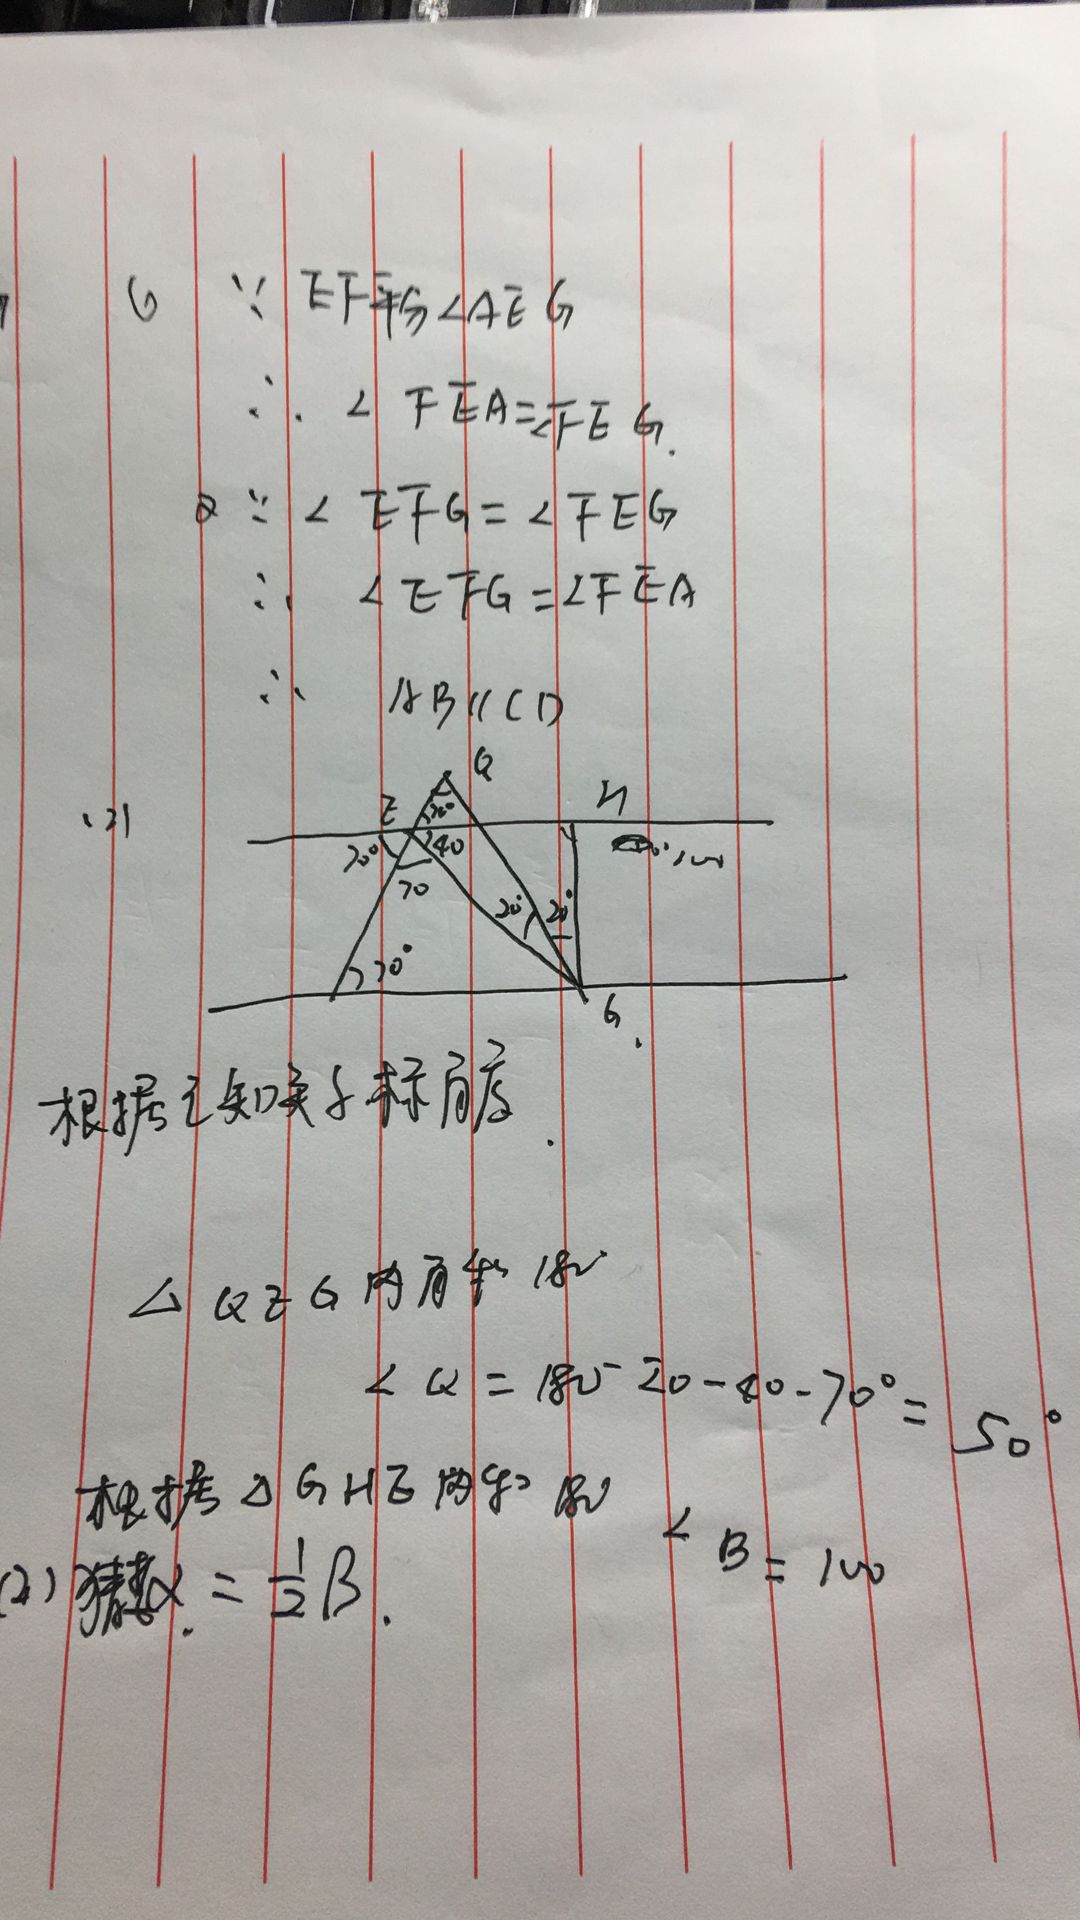 ∵ EF平分∠AEG
∴ ∠FEA=∠FEG.
∵ ∠EFG=∠FEG
∴ ∠EFG=∠FEA
∴ AB∥CD
Q
E
H
70°
40
70
20°
20°
100
70°
G.
根据已知条件标角度.
△QEG内角和180
∠Q=180-20-40-70°=50°
根据△GHE内角和180
∠B=100
(2)猜想α.=1/2β.